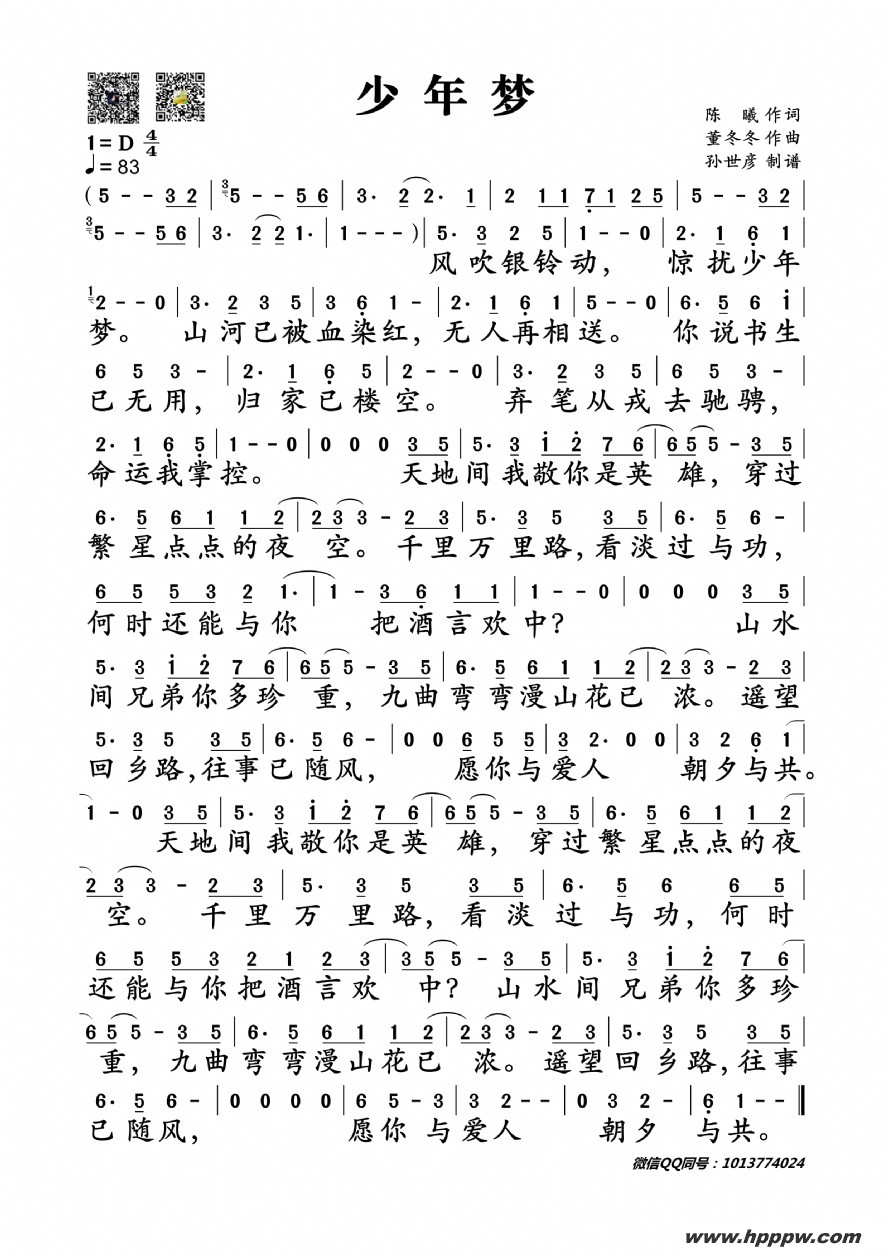 少年梦
陈 曦 作词
董冬冬 作曲
孙世彦 制谱
1=D 4/4
♩=83
(5 - - 3 2 | 3 5 - - 5 6 | 3· 2 2· 1 | 2 1 1 7 1 2 5 | 5 - - 3 2 |
3 5 - - 5 6 | 3· 2 2 1· | 1 - - - ) | 5· 3 2 5 | 1 - - 0 | 2· 1 6 1 |
风吹银铃动, 惊扰少年
1 2 - - 0 | 3· 2 3 5 | 3 6 1 - | 2· 1 6 1 | 5 - - 0 | 6· 5 6 i |
梦。 山河已被血染红, 无人再相送。 你说书生
6 5 3 - | 2· 1 6 5 | 2 - - 0 | 3· 2 3 5 | 6 5 3 - |
已无用, 归家已楼空。 弃笔从戎去驰骋,
2· 1 6 5 | 1 - - 0 | 0 0 0 3 5 | 5· 3 i 2 7 6 | 6 5 5 - 3 5 |
命运我掌控。 天地间我敬你是英 雄, 穿过
6· 5 6 1 1 1 2 | 2 3 3 - 2 3 | 5· 3 5 3 5 | 6· 5 6 - |
繁星点点的夜 空。千里万里路,看淡过与功,
6 5 5 3 2 1· | 1 - 3 6 1 1 | 1 - - 0 | 0 0 0 3 5 |
何时还能与你 把酒言欢中? 山水
5· 3 i 2 7 6 | 6 5 5 - 3 5 | 6· 5 6 1 1 1 2 | 2 3 3 - 2 3 |
间兄弟你多珍 重, 九曲弯弯漫山花已 浓。遥望
5· 3 5 3 5 | 6· 5 6 - | 0 0 6 5 5 | 3 2· 0 0 | 3 2 6 1 |
回乡路,往事已随风, 愿你与爱人 朝夕与共。
1 - 0 3 5 | 5· 3 i 2 7 6 | 6 5 5 - 3 5 | 6· 5 6 1 1 1 2 |
天地间我敬你是英 雄, 穿过繁星点点的夜
2 3 3 - 2 3 | 5· 3 5 3 5 | 6· 5 6 6 5 |
空。 千里万里路, 看淡过与功, 何时
6 5 5 3 2 1 2 3 | 3 5 5 - 3 5 | 5· 3 i 2 7 6 |
还能与你把酒言欢 中? 山水间兄弟你多珍
6 5 5 - 3 5 | 6· 5 6 1 1 1 2 | 2 3 3 - 2 3 | 5· 3 5 3 5 |
重, 九曲弯弯漫山花已 浓。遥望回乡路,往事
6· 5 6 - | 0 0 0 0 | 6 5 · 5 3 | 3 2 - - | 0 3 2 - | 6 1 - - ‖
已随风, 愿你与爱人 朝夕 与共。
微信QQ同号:1013774024
www.hpppw.com